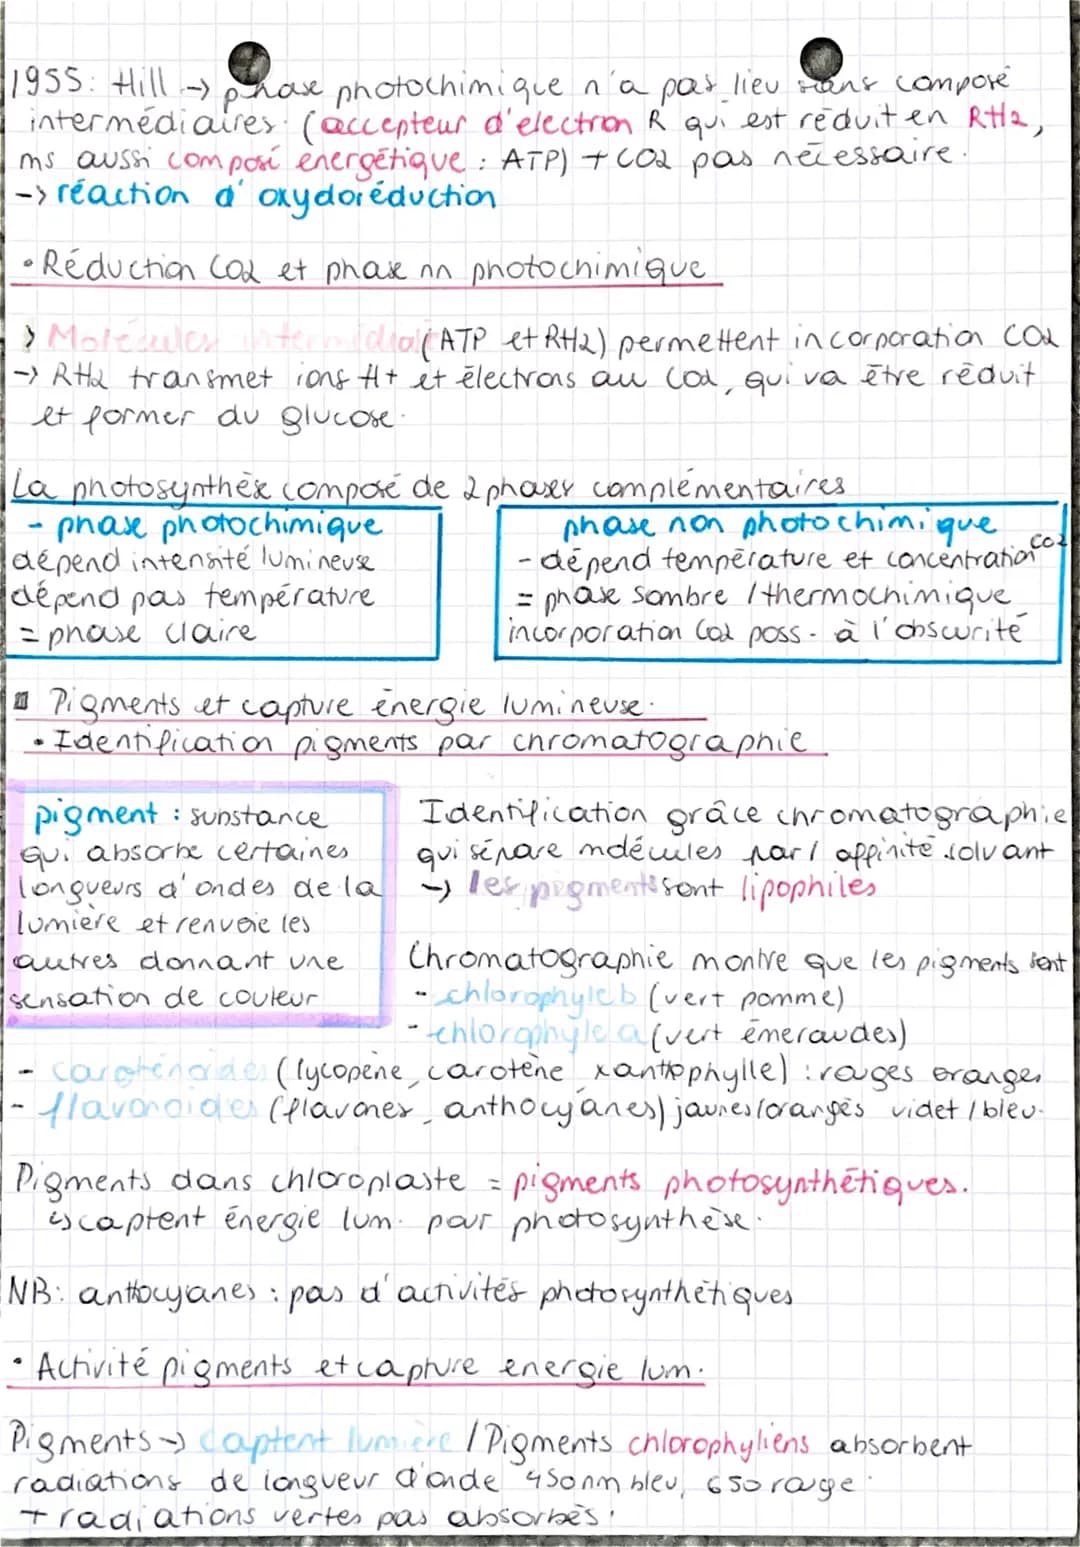 1955: Hill → phase photochimique n'a pas lieu sans composé
intermédiaires (accepteur d'electron R qui est réduit en RH2,
ms aussi composé énergétique : ATP) + CO2 pas nécessaire.
→ réaction d'oxydoréduction
• Réduction CO2 et phase nn photochimique
> Molécules intermédiai (ATP et RH2) permettent incorporation CO2
→ RH2 transmet ions H+ et électrons au CO2, qui va être réduit
et former du glucose.
La photosynthèse composé de 2 phases complémentaires
- phase photochimique
dépend intensité lumineuse
dépend pas température
= phase claire
phase non photochimique
- dépend température et concentration CO2
= phase sombre / thermochimique
incorporation CO2 poss. à l'obscurité
Pigments et capture énergie lumineuse.
• Identification pigments par chromatographie
pigment : substance
qui absorbe certaines
longueurs d'ondes de la
lumière et renvoie les
autres donnant une
sensation de couleur
Identification grâce chromatographie
qui sépare molécules par / affinité solvant
→ les pigments sont lipophiles
Chromatographie montre que les pigments sont
- chlorophyle b (vert pomme)
- chlorophyle a (vert émeraudes)
- caroténoides (lycopène, carotène, xanthophylle) : rouges oranges
- flavonoides (flavones, anthocyanes) jaunes/orangés violet / bleu.
Pigments dans chloroplaste = pigments photosynthétiques.
↳ captent énergie lum. pour photosynthèse.
NB: anthocyanes : pas d'activités photosynthétiques
• Activité pigments et capture energie lum.
Pigments → captent lumière / Pigments chlorophyliens absorbent
radiations de longueur d'onde 450nm bleu, 650 rouge.
+ radiations vertes pas absorbés.